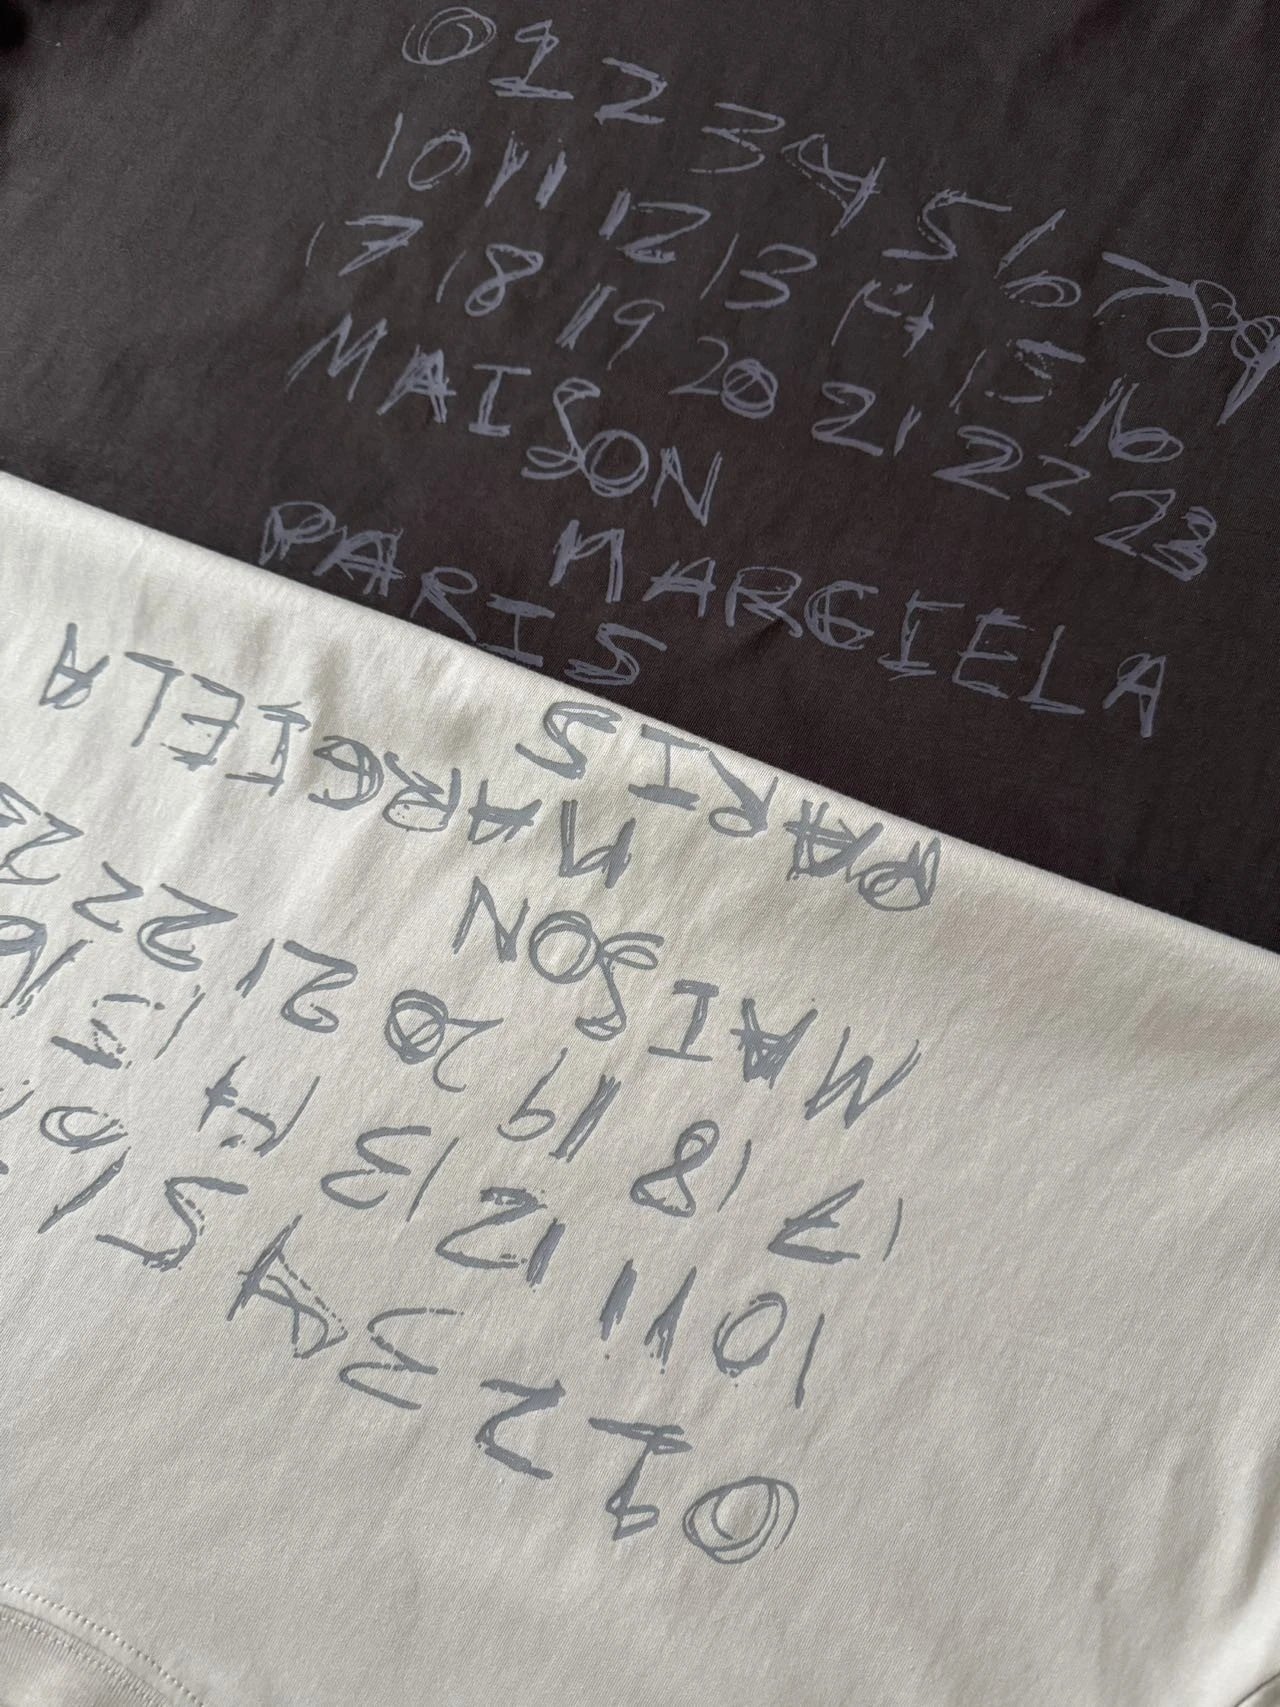 0 1 2 3 4 5 6 7 8 9
10 11 12 13 14 15 16
17 18 19 20 21 22 23
MAISON
MARGIELA
PARIS
0 1 2 3 4 5 6
10 11 12 13 14 15 16
17 18 19 20 21 22 23
MAISON
MARGIELA
PARIS